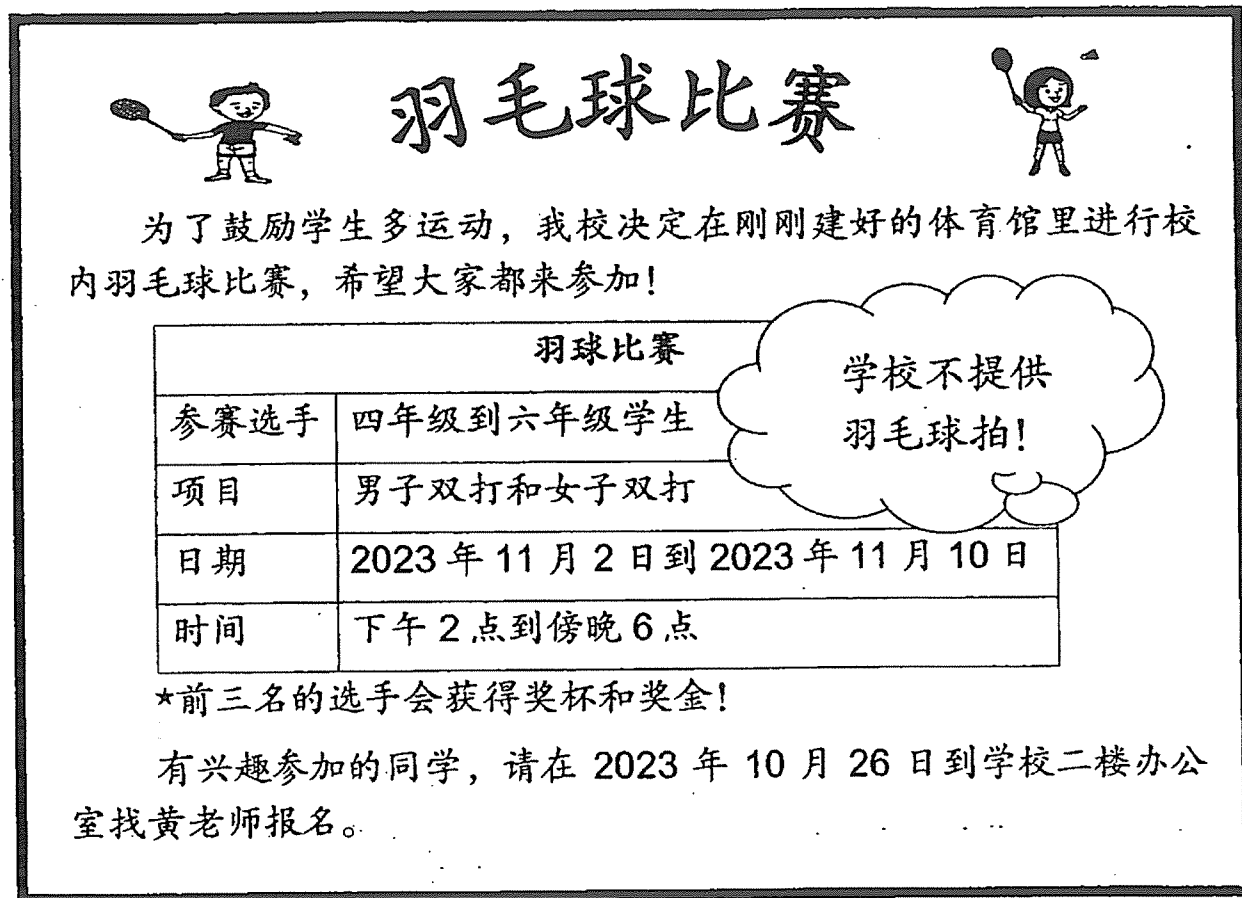 羽毛球比赛
为了鼓励学生多运动，我校决定在刚刚建好的体育馆里进行校
内羽毛球比赛，希望大家都来参加！
羽球比赛
学校不提供
羽毛球拍！
参赛选手 四年级到六年级学生
项目 男子双打和女子双打
日期 2023年11月2日到2023年11月10日
时间 下午2点到傍晚6点
*前三名的选手会获得奖杯和奖金！
有兴趣参加的同学，请在 2023 年 10 月 26 日到学校二楼办公
室找黄老师报名。